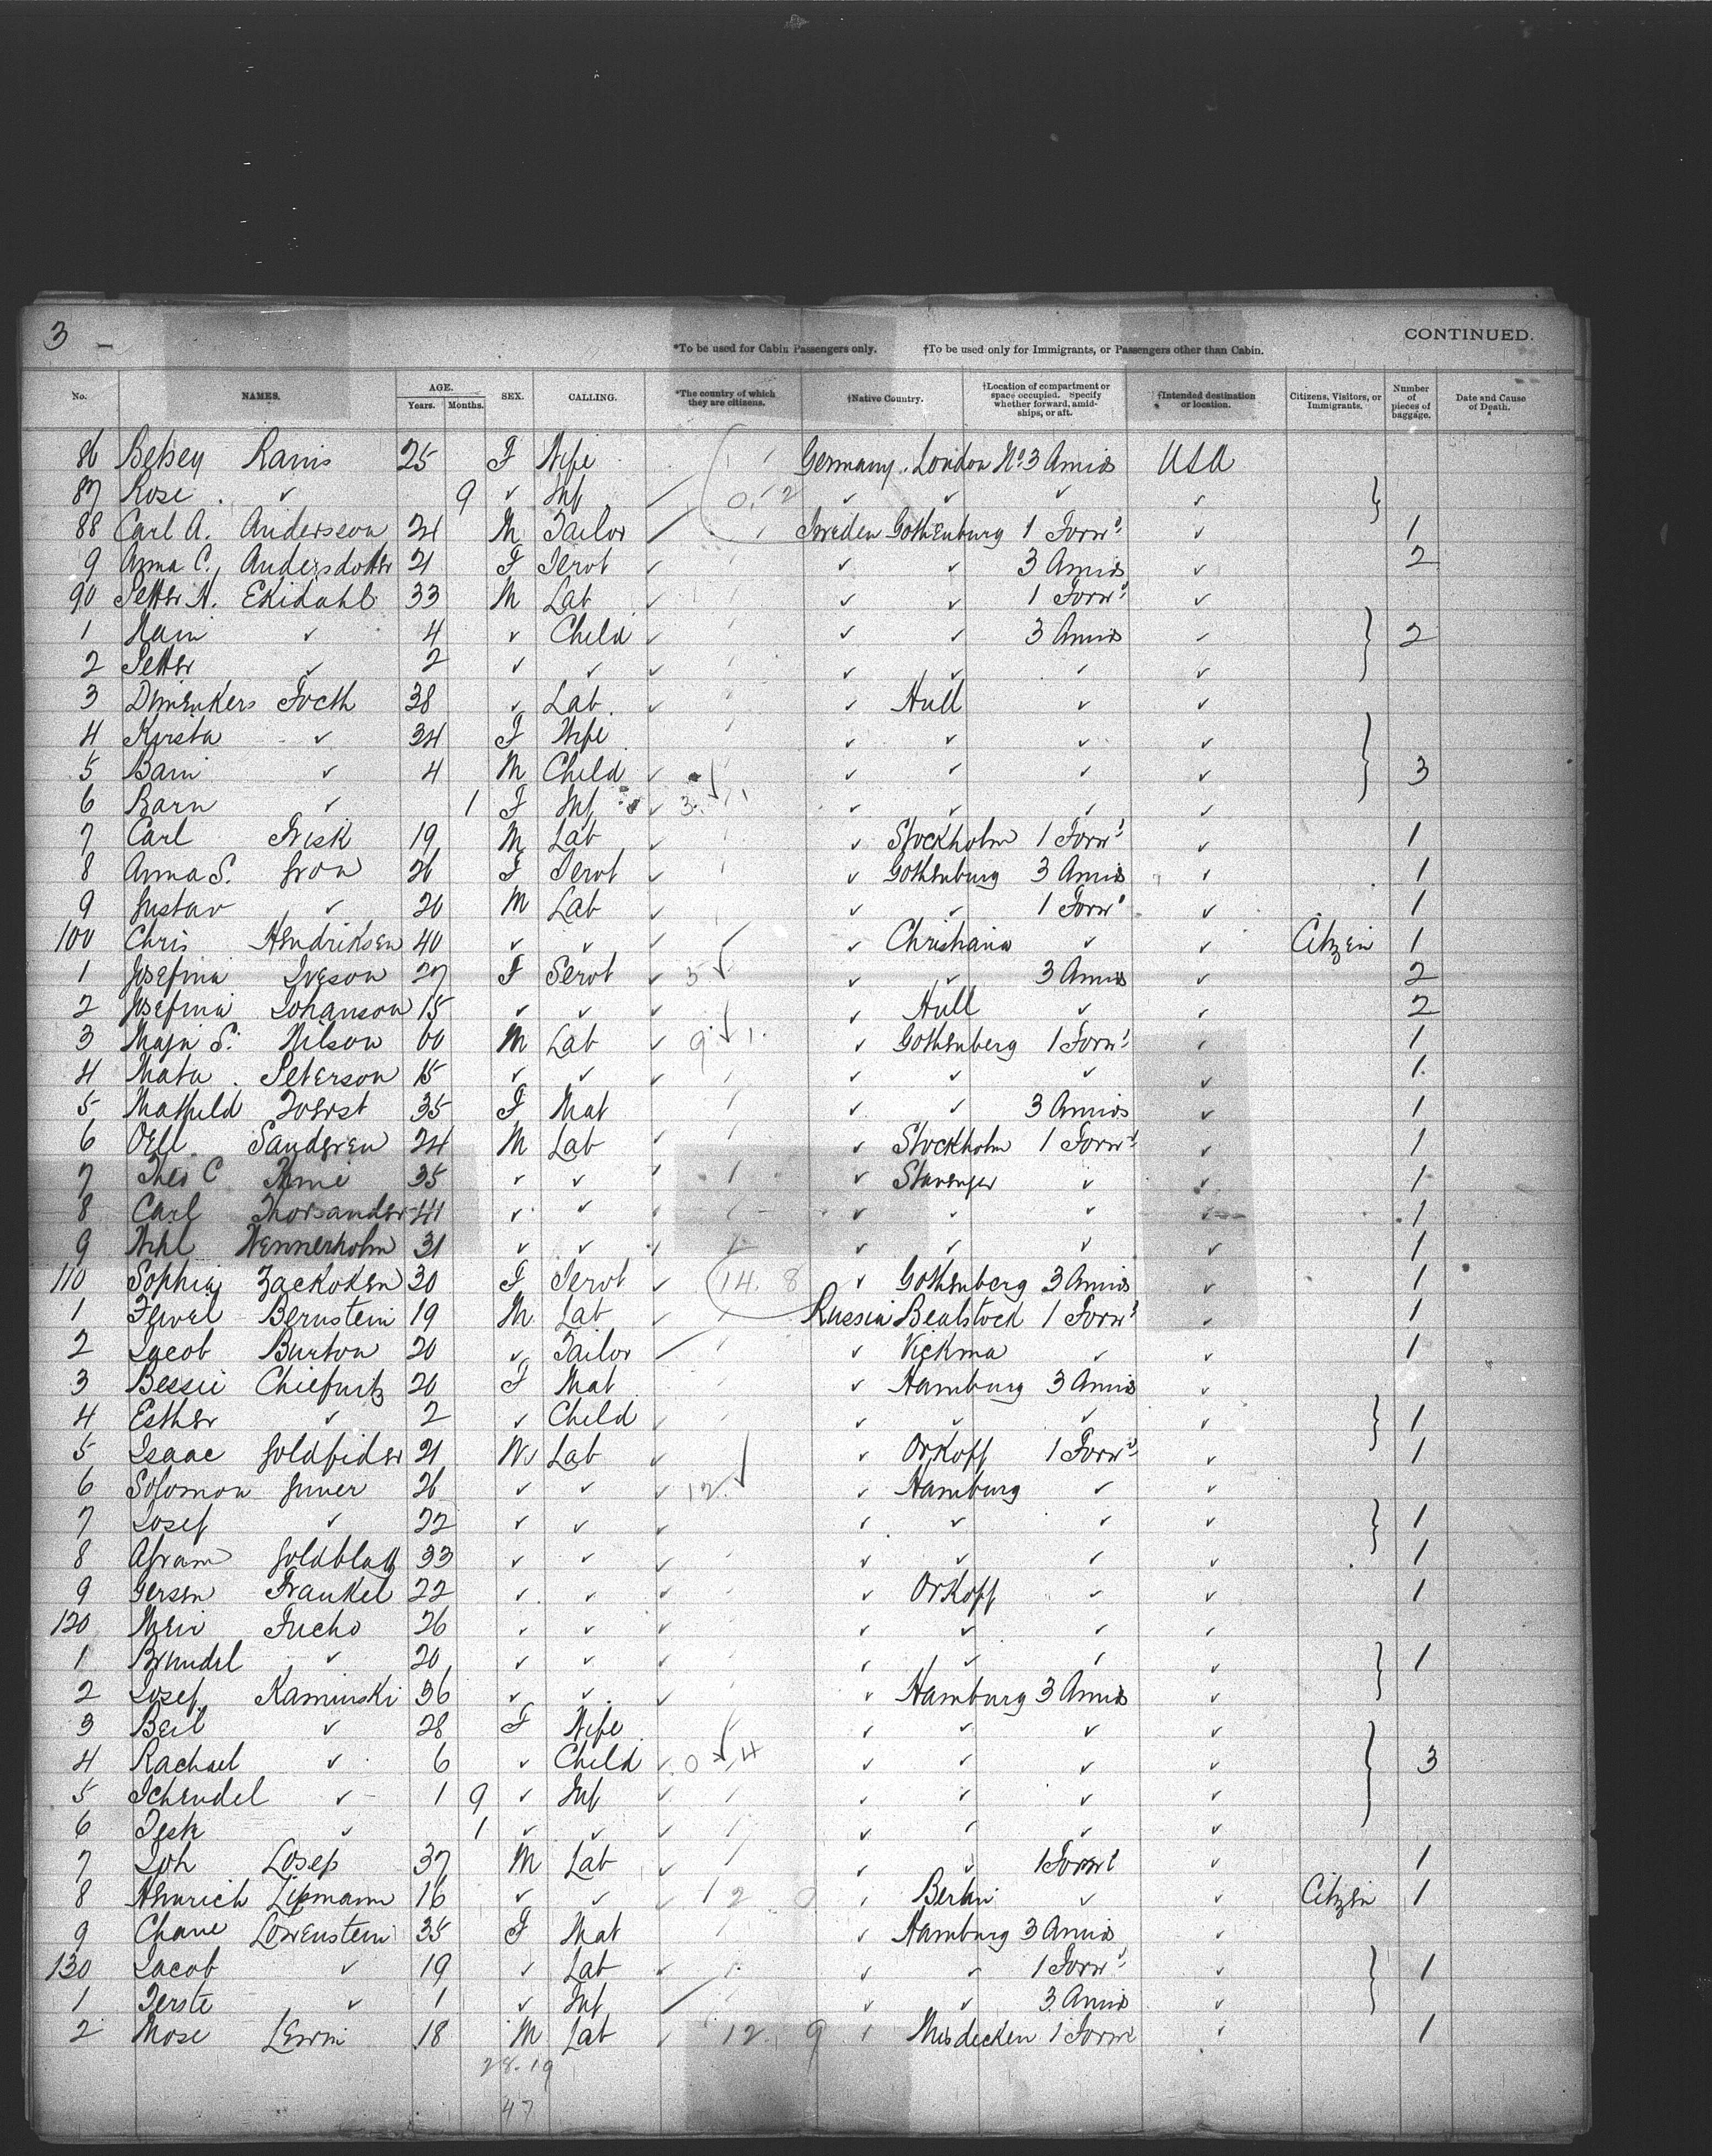 3 -
CONTINUED.
*To be used for Cabin Passengers only. †To be used only for Immigrants, or Passengers other than Cabin.
No. NAMES. AGE. Years. Months. SEX. CALLING. *The country of which they are citizens. †Native Country. †Location of compartment or space occupied. Specify whether forward, amidships, or aft. †Intended destination or location. Citizens, Visitors, or Immigrants. Number of pieces of baggage. Date and Cause of Death.
86 Betsey Ranis 25 F Wife Germany. London No. 3 Amids USA
87 Rose ✓ 9 ✓ Inf 0. 2 ✓ ✓ ✓ ✓ }
88 Carl A. Andersson 24 M Tailor Sweden Gothenburg 1 Forwd ✓ 1
9 Anna C. Andersdotter 21 F Servt ✓ ✓ ✓ 3 Amids ✓ 2
90 Petter A. Ekidahl 33 M Lab ✓ ✓ ✓ 1 Forwd ✓
1 ✓ 4 ✓ Child ✓ ✓ ✓ 3 Amids ✓ } 2
2 Petter ✓ 2 ✓ ✓ ✓ ✓ ✓ ✓ ✓
3 Focth 38 ✓ Lab. ✓ ✓ Hull ✓ ✓
4 Kirsta ✓ 34 F Wife ✓ ✓ ✓ ✓
5 Barn ✓ 4 M Child ✓ ✓ ✓ ✓ ✓ } 3
6 Barn ✓ 1 F Inf ✓ 3. ✓ ✓ ✓ ✓
7 Carl Frisk 19 M Lab ✓ ✓ Stockholm 1 Forwd ✓ 1
8 Anna S. Gron 26 F Servt ✓ ✓ Gothenburg 3 Amids ✓ 1
9 Gustav ✓ 20 M Lab ✓ ✓ ✓ 1 Forwd ✓ 1
100 Chris Hendriksen 40 ✓ ✓ ✓ ✓ Christiania ✓ ✓ Citizen 1
1 Josefina Iveson 27 F Servt ✓ 5 ✓ ✓ 3 Amids ✓ 2
2 Josefina Johanson 15 ✓ ✓ ✓ ✓ Hull ✓ ✓ 2
3 Maja S. Nilson 60 M Lab ✓ 9 1. ✓ Gothenberg 1 Forwd ✓ 1
4 Mata Peterson 15 ✓ ✓ ✓ ✓ ✓ ✓ ✓ 1
5 Mathild 35 F Mat ✓ ✓ 3 Amids ✓ 1
6 Sandgren 24 M Lab ✓ ✓ Stockholm 1 Forwd ✓ 1
7 Theo C 35 ✓ ✓ ✓ Stavenger ✓ ✓ 1
8 Carl Thorsander 41 ✓ ✓ ✓ ✓ ✓ ✓ 1
9 Wennerholm 31 ✓ ✓ ✓ ✓ ✓ ✓ 1
110 Sophia Zackoken 30 F Servt ✓ 14. 8 ✓ Gothenberg 3 Amids ✓ 1
1 Feivel Bernstein 19 M Lab ✓ Russia Bealstock 1 Forwd ✓ 1
2 Jacob Burton 20 ✓ Tailor ✓ Vickma ✓ ✓ 1
3 Bessie 20 F Mat ✓ Hamburg 3 Amids ✓
4 Esther ✓ 2 ✓ Child ✓ ✓ ✓ ✓ ✓ } 1
5 Isaac Goldfider 21 M Lab ✓ ✓ Orkoff 1 Forwd ✓ 1
6 Solomon 26 ✓ ✓ ✓ 12 ✓ Hamburg ✓ ✓
7 Josef ✓ 22 ✓ ✓ ✓ ✓ ✓ ✓ ✓ } 1
8 Abram Goldblatt 33 ✓ ✓ ✓ ✓ ✓ ✓ ✓ 1
9 Gersen Frankel 22 ✓ ✓ ✓ ✓ Orkoff ✓ ✓ 1
120 Meir Fuchs 26 ✓ ✓ ✓ ✓ ✓ ✓ ✓
1 Brundel ✓ 20 ✓ ✓ ✓ ✓ ✓ ✓ ✓ } 1
2 Josef Kaminski 36 ✓ ✓ ✓ ✓ Hamburg 3 Amids ✓
3 Beil ✓ 28 F Wife ✓ ✓ ✓ ✓
4 Rachael ✓ 6 ✓ Child ✓ 0 4 ✓ ✓ ✓ ✓ } 3
5 Schendel ✓ 1 9 ✓ Inf ✓ ✓ ✓ ✓ ✓
6 ✓ 1 ✓ ✓ ✓ ✓ ✓ ✓ ✓
7 Joh Josep 37 M Lab ✓ ✓ ✓ 1 Forwd ✓ 1
8 Heinrich Lipmann 16 ✓ ✓ ✓ 12 0 ✓ Berlin ✓ ✓ Citizen 1
9 Chane Lowenstein 35 F Mat ✓ Hamburg 3 Amids ✓
130 Jacob ✓ 19 ✓ Lab ✓ ✓ ✓ 1 Forwd ✓ } 1
1 ✓ 1 ✓ Inf ✓ ✓ 3 Amids ✓
2 Mose Lewin 18 M Lab ✓ 12. 9 ✓ Misdecken 1 Forwd ✓ 1
28. 19
47